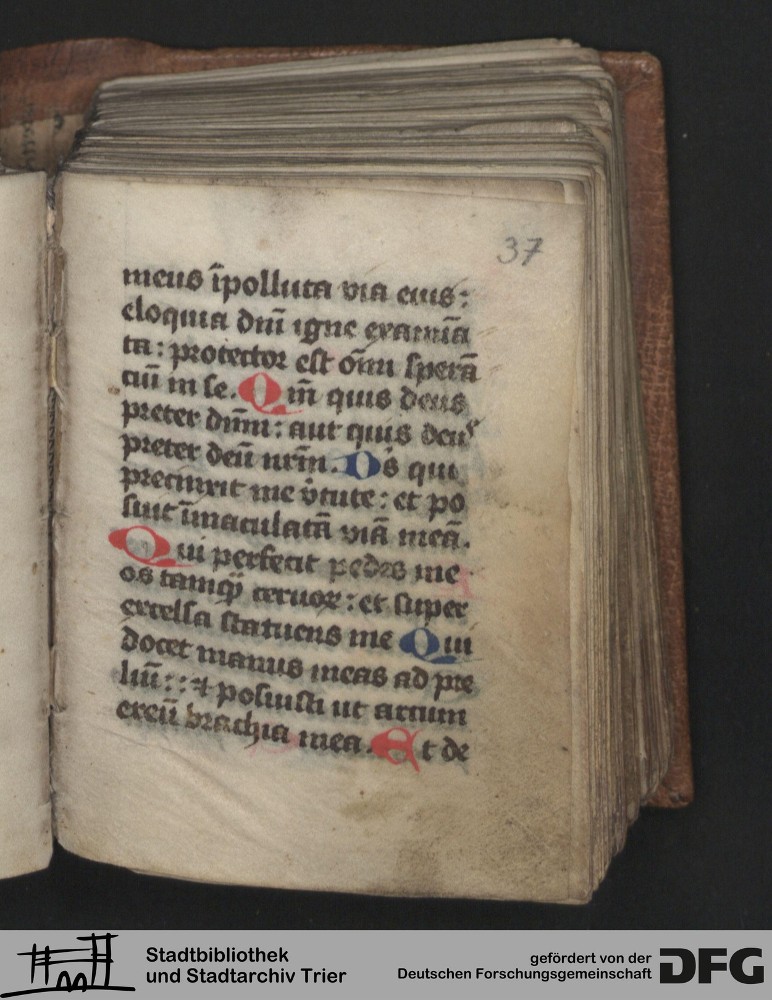 37
meus īpolluta via eius:
eloquia dnī igne examīa
ta: protector est oīm sperā
ciū in se. Qm̄ quis deus
preter dnm̄: aut quis deus
preter deū nrm̄. Ds qui
precinxit me v̾tute: et po
suit īmaculatā viā meā.
Qui perfecit pedes me
os tamq̄ ceruoꝝ: et super
excelsa statuens me Qui
docet manus meas ad pre
liū: : ⁊ posuisti ut arcum
ereū brachia mea. Et de
Stadtbibliothek
und Stadtarchiv Trier
gefördert von der
Deutschen Forschungsgemeinschaft
DFG